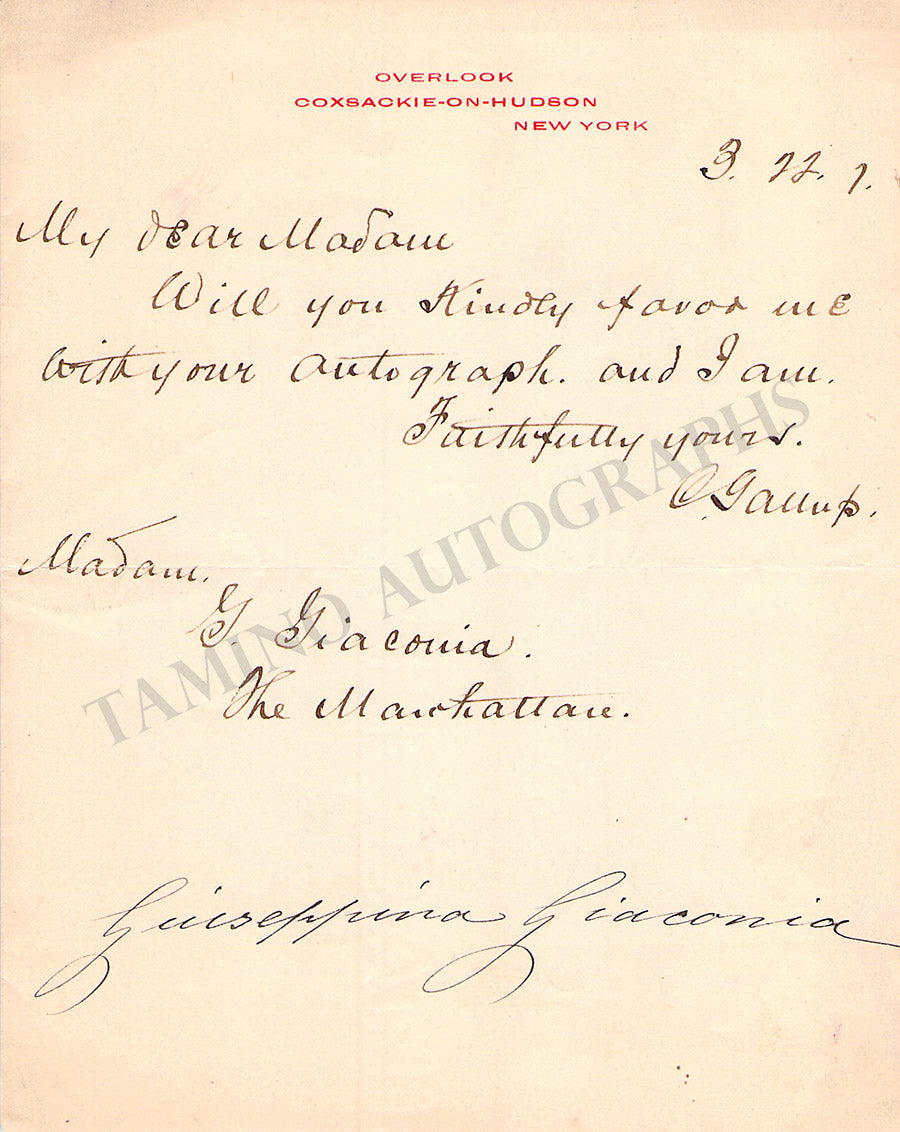 OVERLOOK
COXSACKIE-ON-HUDSON
NEW YORK
3. 22. 1.
My dear Madam
Will you Kindly favor me
with your autograph. and I am.
Faithfully yours.
O. Gallup.
Madam.
G. Giaconia.
The Manhattan.
TAMINO AUTOGRAPHS
Guiseppina Giaconia